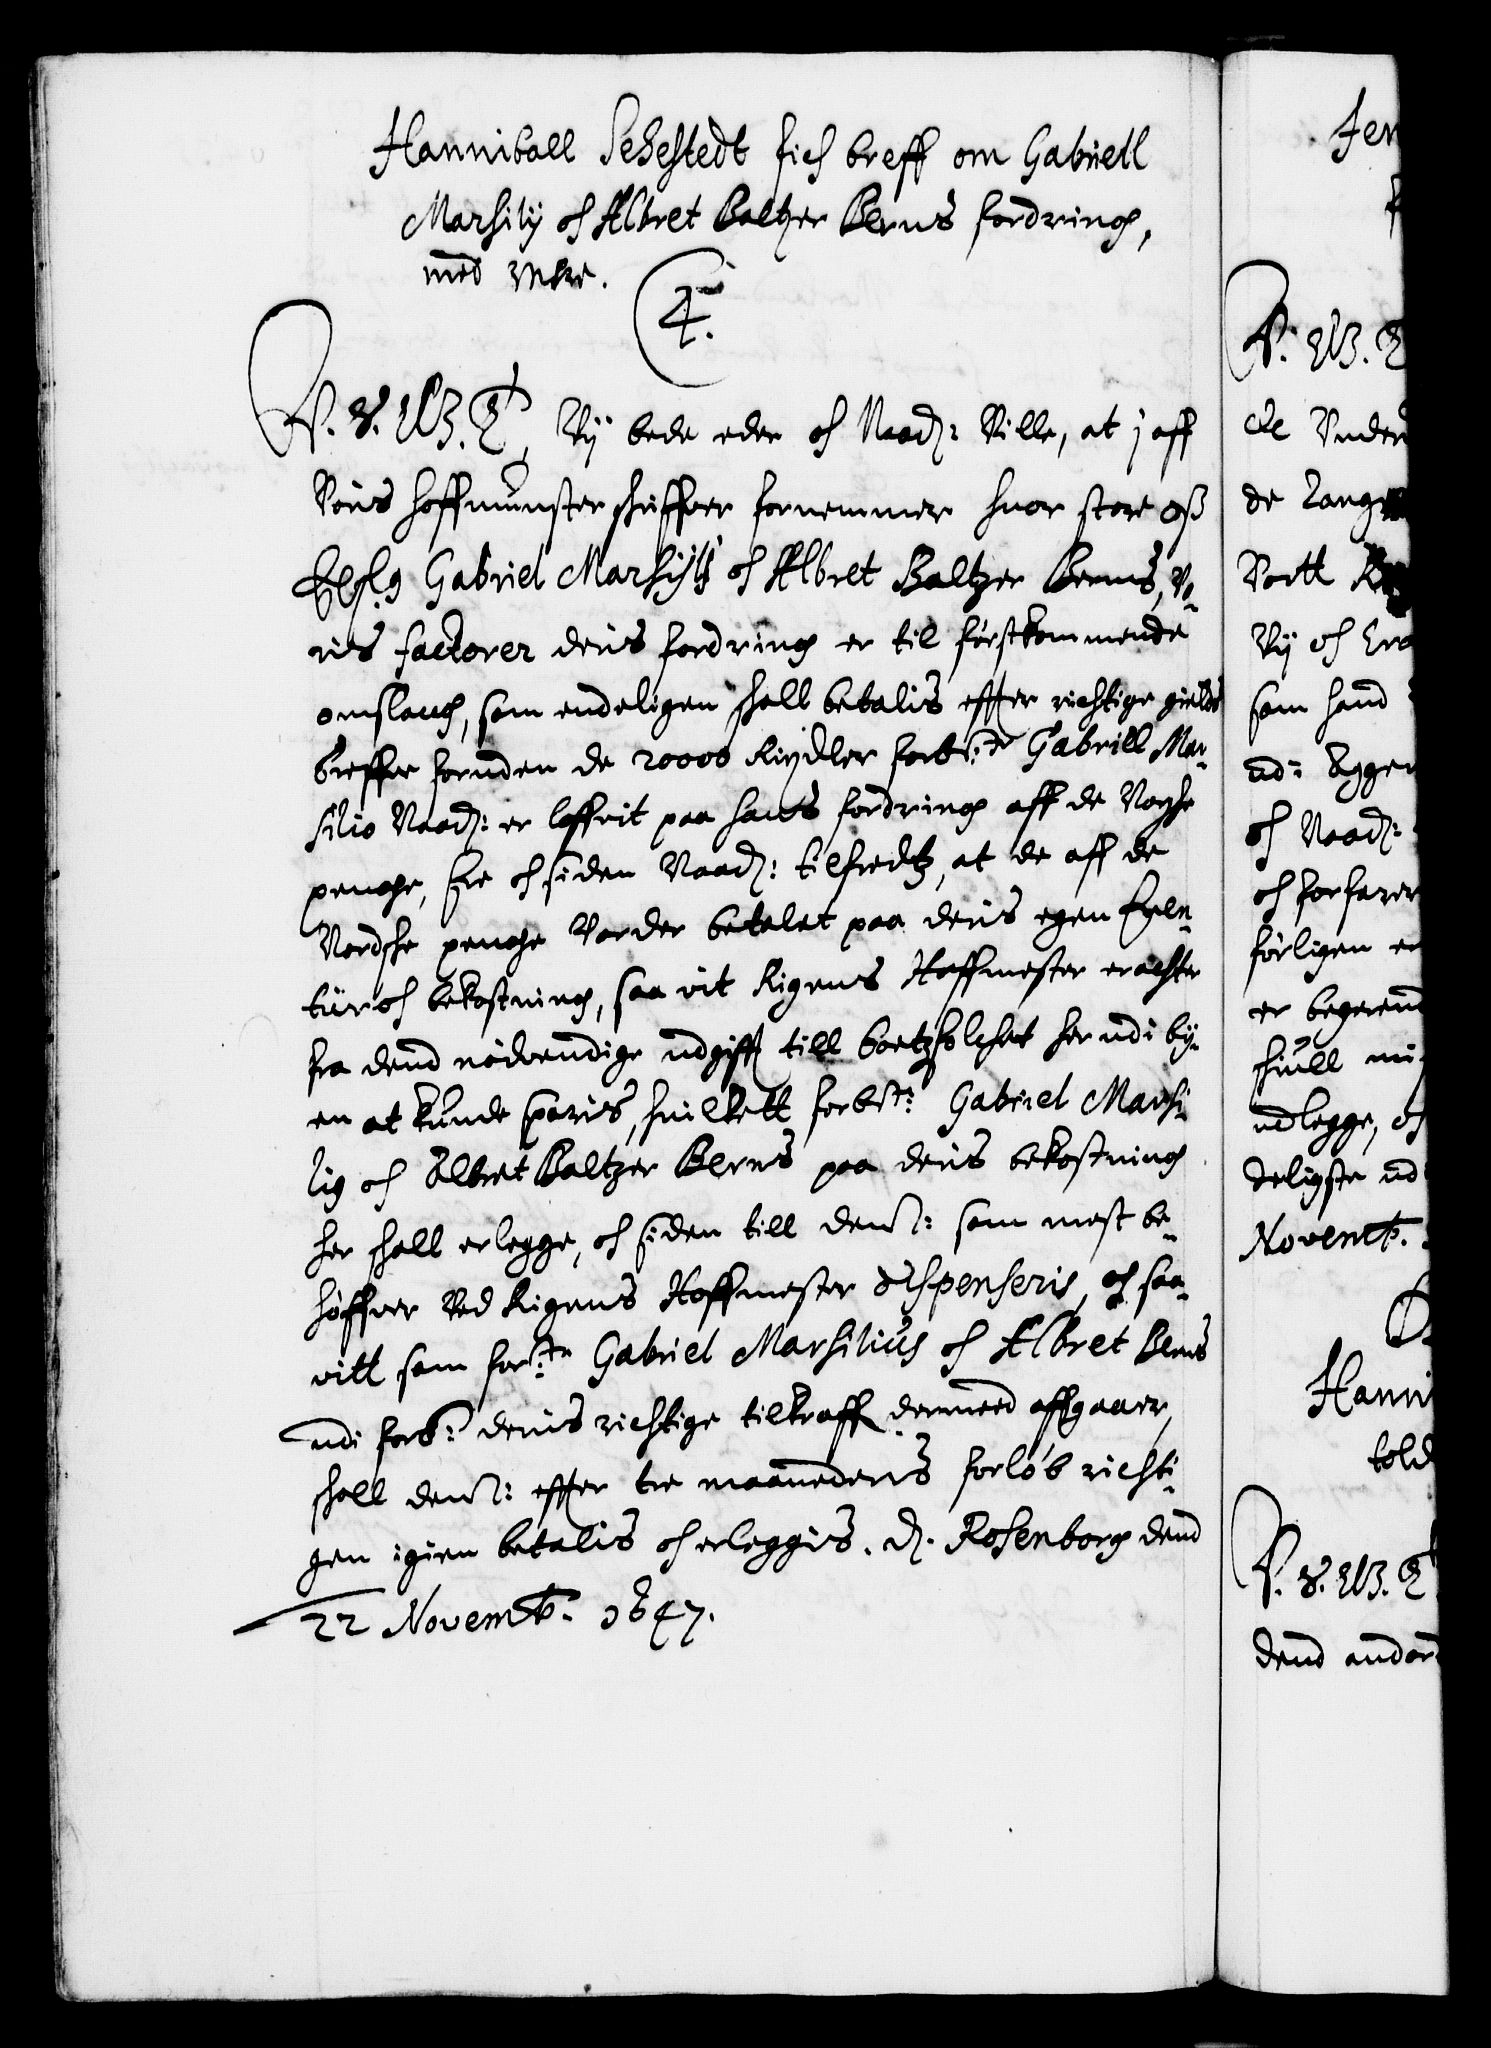 Hanniball Sehestedt fich breff om Gabriell
Marsilij och Albret Baltzer Berns fordring,
med mere.
4.
V. S. G. T. Vij bede eder och Naad: Ville, at j aff
Voris hoffmunster schriffver fornemmer huor store oß
Elsk. Gabriel Marsilij och Albret Baltzer Berns, Vo-
ris factorer deris fordring er til førstkommende
omslaug, som endeligen skall betalis effter richtige gields
breffve foruden de 20000 Rixdler forb.te Gabriell Mar-
silio Naad: er loffvit paa hans fordring aff de Norske
penge, Ere och siden Naad: tilfredtz, at de aff de
Nordske penge Vorder betalet paa deris egen
och bekostning, saa vit Rigens Hoffmester erachter
fra dend nødvendige udgifft till her udi by-
en at kunde sparis, huilkett forb.te: Gabriel Marsi-
lig och Albret Baltzer Berns paa deris bekostning
her skall erlegge, och siden till dem: som mest be-
høffver Ved Rigens Hoffmester dispenseris, och saa-
vitt som for.te Gabriel Marsilius och Albret Berns
udi forb: deris richtige tilkraff dermed affgaaer,
skall dem: effter tre maaneders forløb richti-
gen igien betalis och erleggis. D. Rosenborg dend
22 Novemb. 1647.
Jen
V. G. T
de Under
de Lang
Vortt
Vij och Cro
som hand
udi Agger
och Naad:
och forfarer
førligen er
er begerend
skull mi
udlegge, och
deligste ud
Novemb.
Hanni
told
V. S. G. T
dend andor